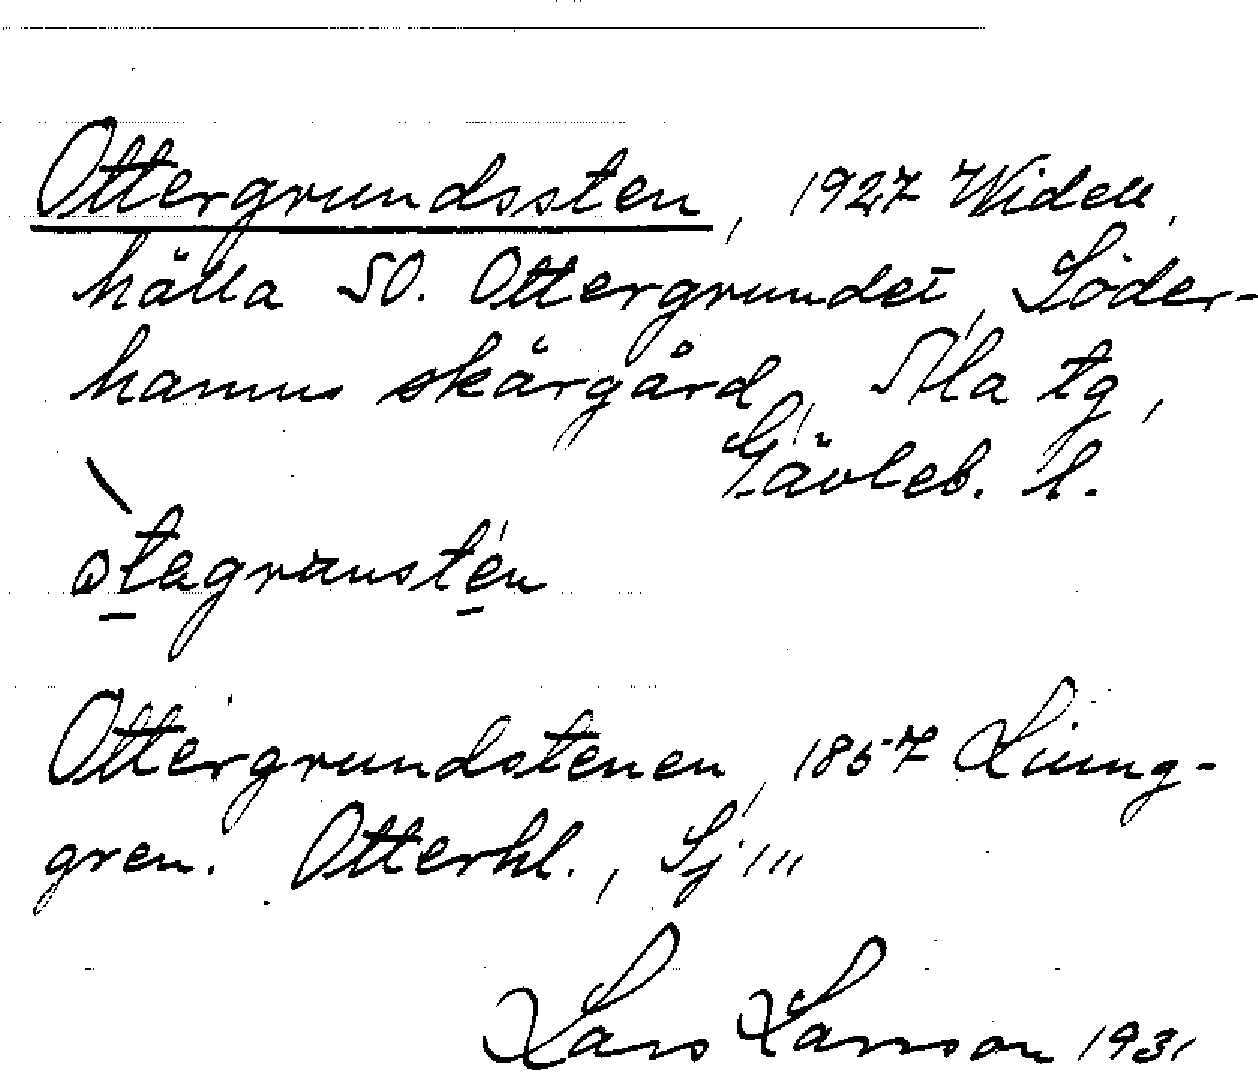 Ottergrundssten, 1927 Widell,
hälla SO. Ottergrundet, Söder-
hamns skärgård, Ala tg,
Gävleb. l.
Ottergrundstenen, 1857 Ljung-
gren. Otterhl., Sj
Lars Larsson 1931